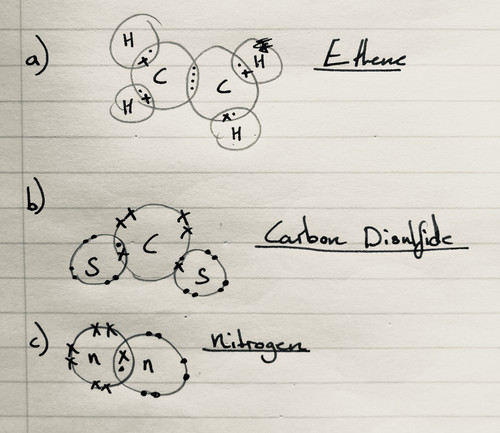 a)
Ethene
H
H
C
C
H
H
b)
Carbon Disulfide
C
S
S
c)
nitrogen
n
n